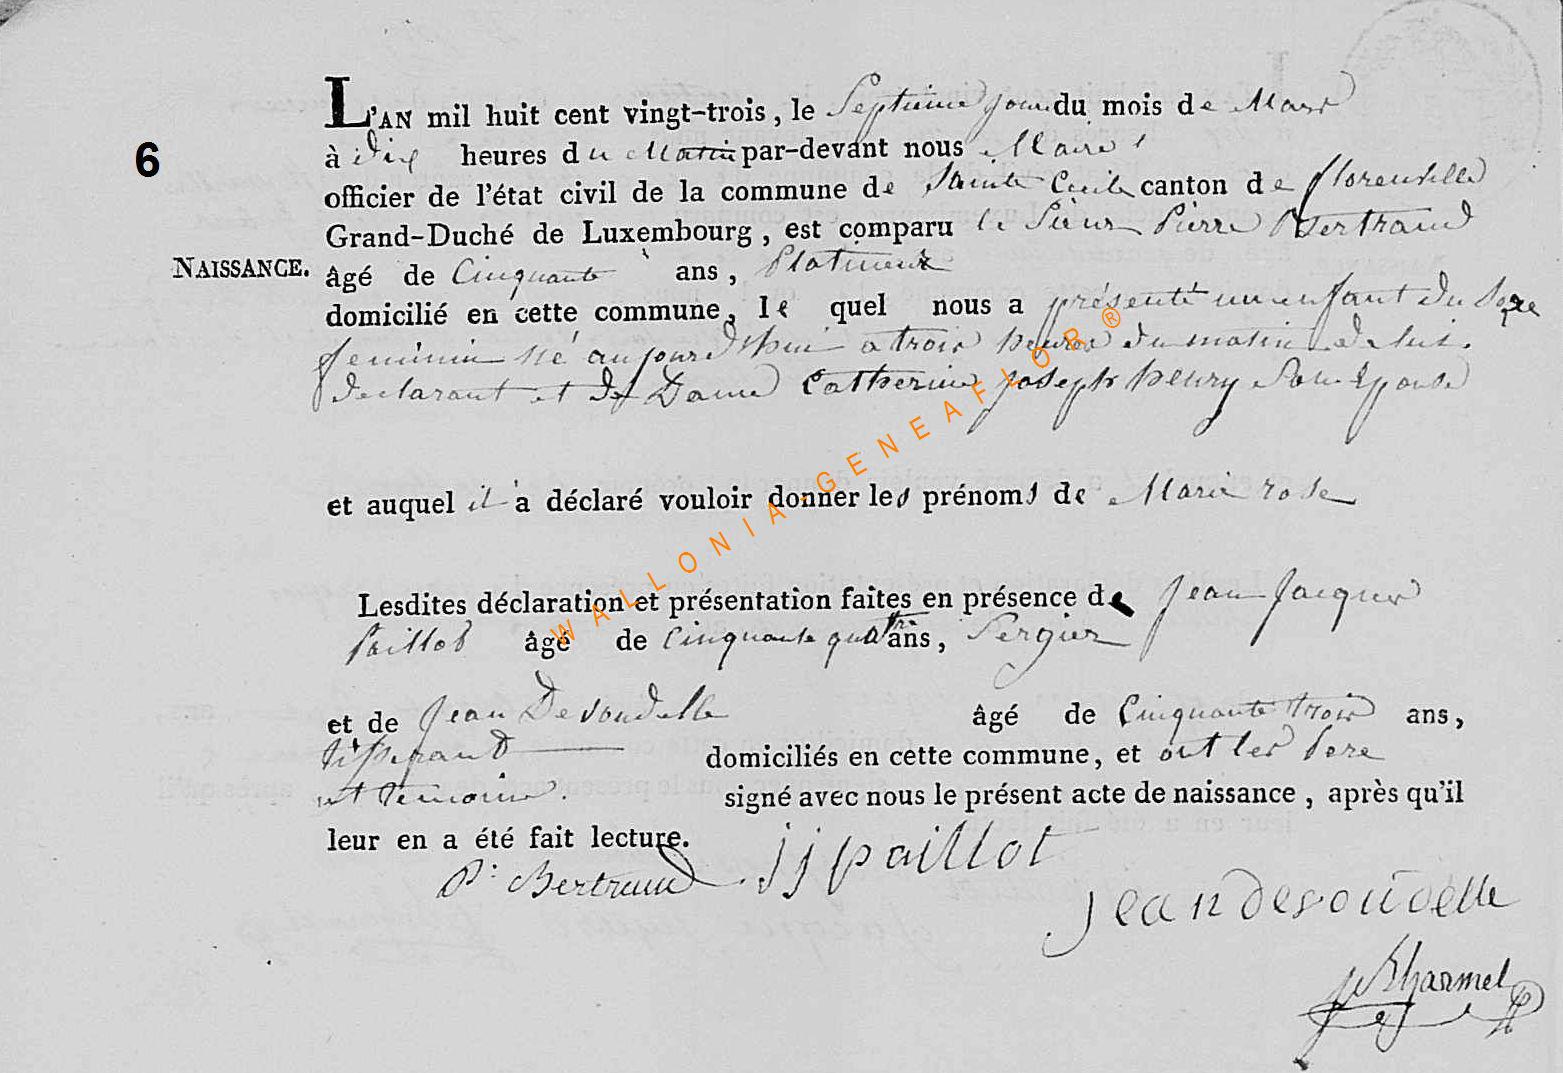 6
L'AN mil huit cent vingt-trois, le Septieme jour du mois de Mars
à dix heures du Matin par-devant nous Maire
officier de l'état civil de la commune de Sainte Cecile canton de florenville
Grand-Duché de Luxembourg, est comparu le Sieur Pierre Bertrand
NAISSANCE.
âgé de Cinquante ans, Platineur
domicilié en cette commune, le quel nous a présenté un enfant du Sexe
feminin né aujourdhui a trois heures du matin de lui
declarant et de Dame Catherine joseph henry Son Epouse
et auquel il a déclaré vouloir donner les prénoms de Marie rose
Lesdites déclaration et présentation faites en présence de Jean Jacques
Paillot âgé de Cinquante quatre ans, Sergier
et de Jean Desoudelle âgé de Cinquante trois ans,
tisserand domiciliés en cette commune, et ont les Pere
et temoins. signé avec nous le présent acte de naissance, après qu'il
leur en a été fait lecture.
P: Bertrand jj paillot
jean desoudelle
WALLONIA-GENEAFLOR ®